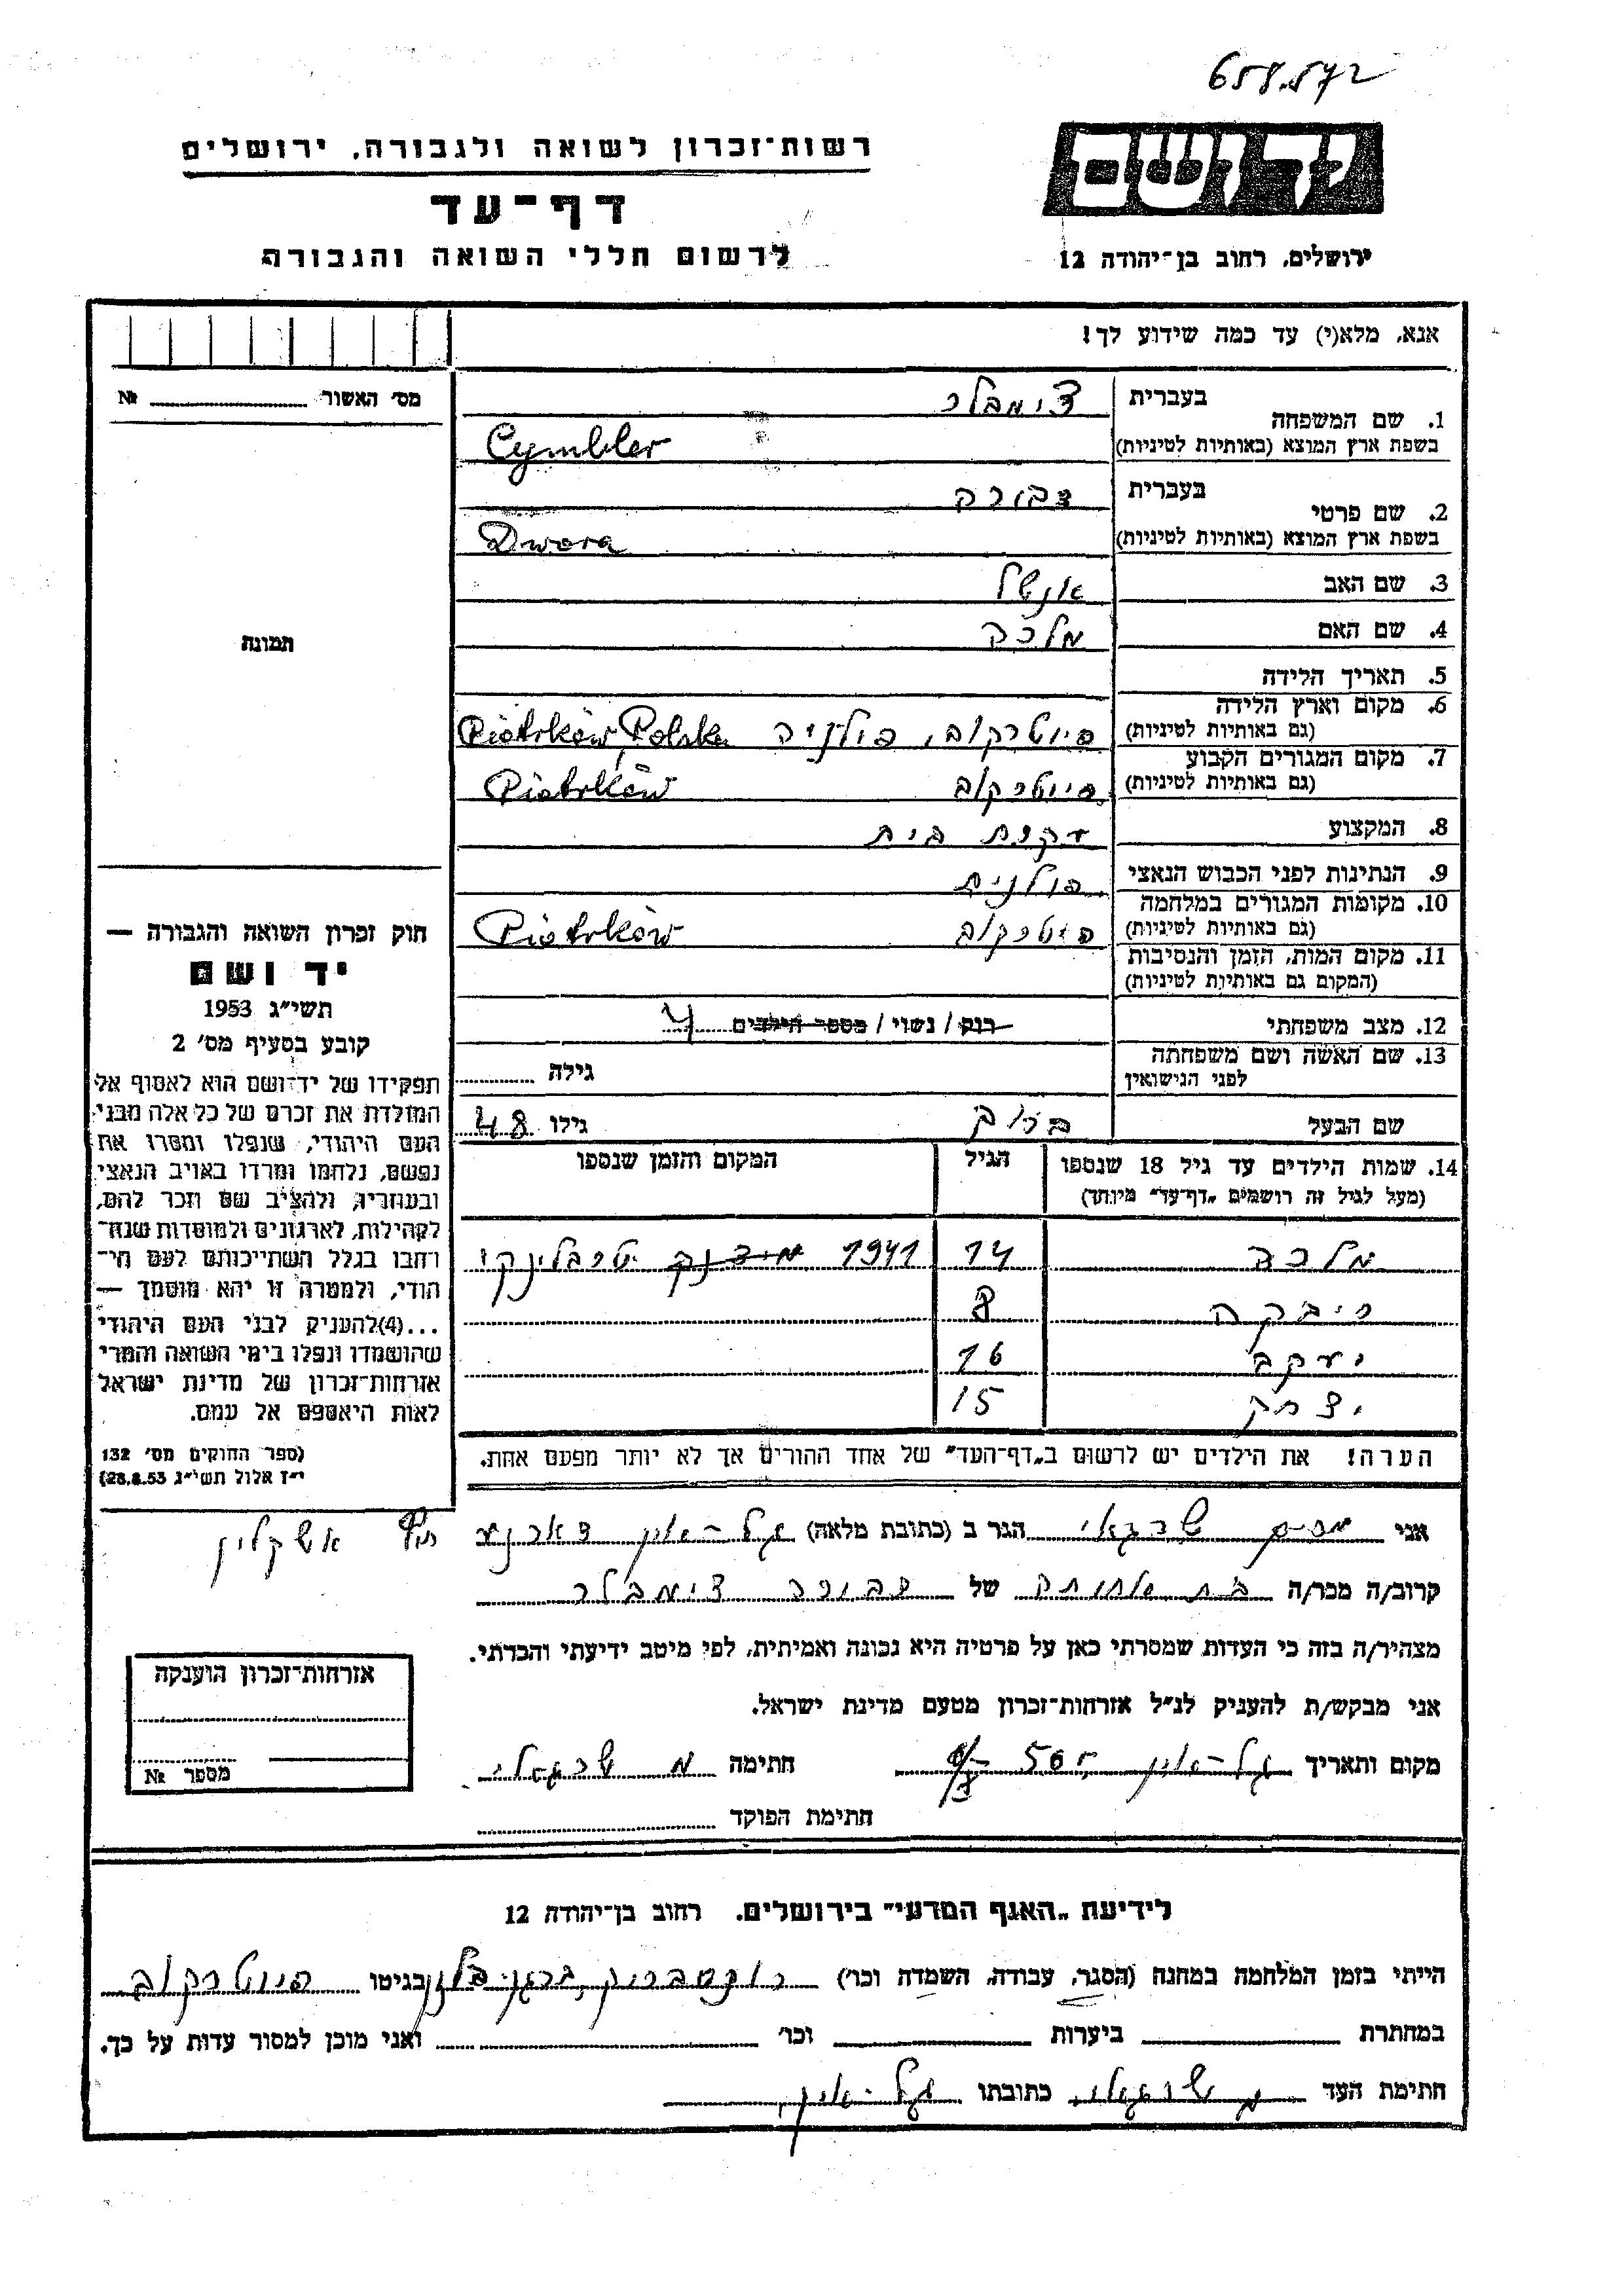 658.572
רשות־זכרון לשואה ולגבורה, ירושלים
דף־עד
לרשום חללי השואה והגבורה
יד ושם
ירושלים, רחוב בן־יהודה 12
אנא, מלא(י) עד כמה שידוע לך!
מס׳ האשור № 
1. שם המשפחה בעברית צימבלר
בשפת ארץ המוצא (באותיות לטיניות) Cymbler
2. שם פרטי בעברית דבורה
בשפת ארץ המוצא (באותיות לטיניות) Dwora
3. שם האב אנשל
4. שם האם מלכה
תמונה
5. תאריך הלידה
6. מקום וארץ הלידה (גם באותיות לטיניות) פיוטרקוב, פולניה Piotrków, Polska
7. מקום המגורים הקבוע (גם באותיות לטיניות) פיוטרקוב Piotrków
8. המקצוע עקרת בית
9. הנתינות לפני הכבוש הנאצי פולנית
10. מקומות המגורים במלחמה (גם באותיות לטיניות) פיוטרקוב Piotrków
11. מקום המות, הזמן והנסיבות (המקום גם באותיות לטיניות)
12. מצב משפחתי רווק / נשוי / מספר הילדים 4
13. שם האשה ושם משפחתה לפני הנישואין גילה
שם הבעל ברוך גילו 48
14. שמות הילדים עד גיל 18 שנספו הגיל המקום והזמן שנספו
(מעל לגיל זה רושמים „דף־עד״ מיוחד)
מלכה 14 1941 מידנק טרבלינקי
ריבקה 8
יעקב 16
יצחק 15
הערה! את הילדים יש לרשום ב„דף־העד״ של אחד ההורים אך לא יותר מפעם אחת.
חוק זכרון השואה והגבורה —
יד ושם
תשי״ג 1953
קובע בסעיף מס׳ 2
תפקידו של יד־ושם הוא לאסוף אל
המולדת את זכרם של כל אלה מבני
העם היהודי, שנפלו ומסרו את
נפשם, נלחמו ומרדו באויב הנאצי
ובעוזריו, ולהציב שם וזכר להם,
לקהילות, לארגונים ולמוסדות שנח־
רחבו בגלל השתייכותם לעם הי־
הודי, ולמטרה זו יהא מוסמך —
...(4)להעניק לבני העם היהודי
שהושמדו ונפלו בימי השואה והמרי
אזרחות־זכרון של מדינת ישראל
לאות היאספם אל עמם.
(ספר החוקים מס׳ 132
י״ז אלול תשי״ג 28.8.53)
אני שרגאי הגר ב (כתובת מלאה) גל־און ד.נ.
חוף אשקלון
קרוב/ה מכר/ה בת אחותה של דבורה צימבלר
מצהיר/ה בזה כי העדות שמסרתי כאן על פרטיה היא נכונה ואמיתית, לפי מיטב ידיעתי והכרתי.
אני מבקש/ת להעניק לנ״ל אזרחות־זכרון מטעם מדינת ישראל.
מקום ותאריך גל־און חתימה מ שרגאי
חתימת הפוקד
אזרחות־זכרון הוענקה
מספר №
לידיעת „האגף המדעי״ בירושלים. רחוב בן־יהודה 12
הייתי בזמן המלחמה במחנה (הסגר, עבודה, השמדה וכו׳) רונסבריק, ברגן בלזן בגיטו פיוטרקוב
במחתרת ביערות וכו׳ ואני מוכן למסור עדות על כך.
חתימת העד מ שרגאי כתובתו גל־און